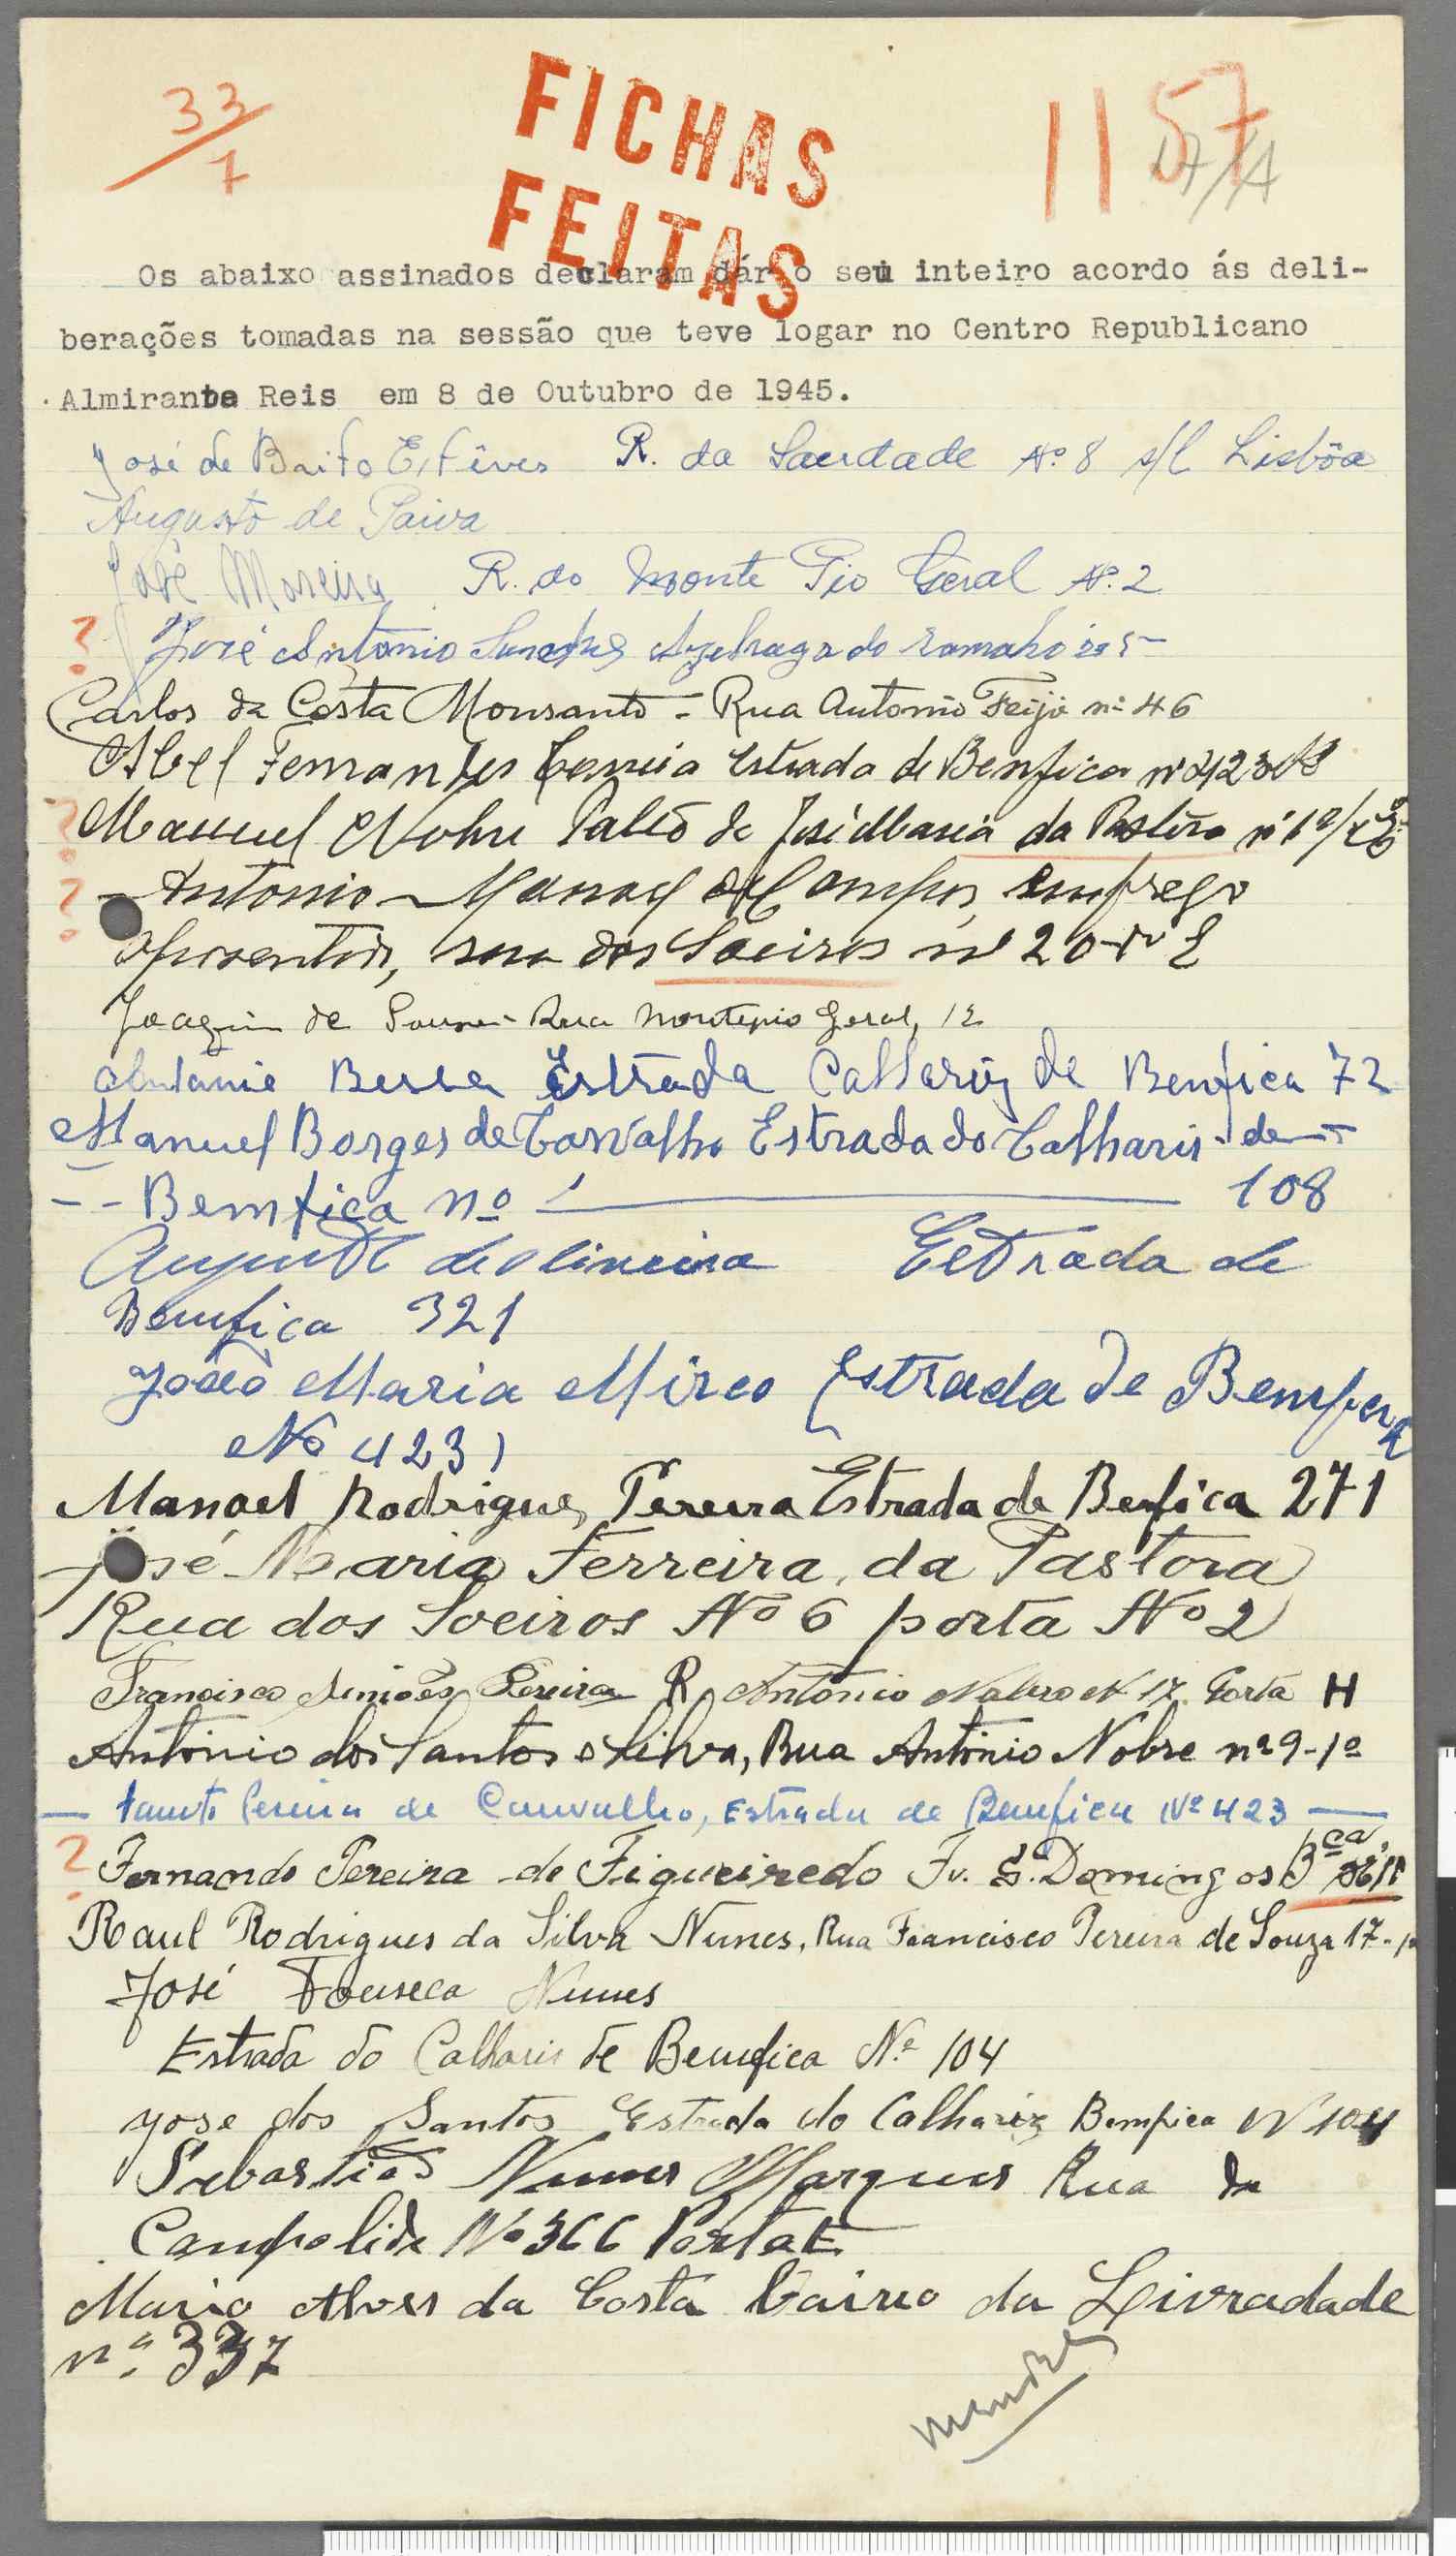 33
7
FICHAS
FEITAS
1157
Os abaixo assinados declaram dár o seu inteiro acordo ás deli-
berações tomadas na sessão que teve logar no Centro Republicano
Almirante Reis em 8 de Outubro de 1945.
José de Brito Estêves R. da Saudade Nº 8 s/l Lisbôa
Augusto de Paiva
José Moreira R. do Monte Pio Geral Nº 2
? José Antonio Azinhaga do Ramalho
Carlos da Costa Monsanto - Rua Antonio Feijó nº 46
Abel Fernandes Correia Estrada de Benfica nº 423
? Manuel Nobre Patio de José Maria da Pastora nº
? Antonio Manoel Campos, emprego
Aposentado, rua dos Soeiros nº 20
Joaquim de Sousa - Rua Montepio Geral, 12
Antonio Bessa Estrada Calhariz de Benfica 72
Manuel Borges de Carvalho Estrada do Calharis de
-- Bemfica nº 108
Augusto de Oliveira Estrada de
Bemfica 321
João Maria Mirco Estrada de Bemfica
Nº 423
Manoel Rodrigues Pereira Estrada de Benfica 271
José Maria Ferreira da Pastora
Rua dos Soeiros Nº 6 porta Nº 2
Francisco Simões Pereira R. Antonio Nobre Nº 17 Porta H
Antonio dos Santos Silva, Rua Antonio Nobre nº 9-1º
— Pereira de Carvalho, Estrada de Bemfica Nº 423 —
? Fernando Pereira de Figueiredo Tv. S. Domingos Bca
Raul Rodrigues da Silva Nunes, Rua Francisco Pereira de Souza 17-
José Fonseca Nunes
Estrada do Calharis de Bemfica Nº 104
Jose dos Santos Estrada do Calhariz Bemfica Nº 104
Sebastião Nunes Marques Rua de
Campolide Nº 366 Porta E
Mario Alves da Costa Bairro da Livradade
nº 337